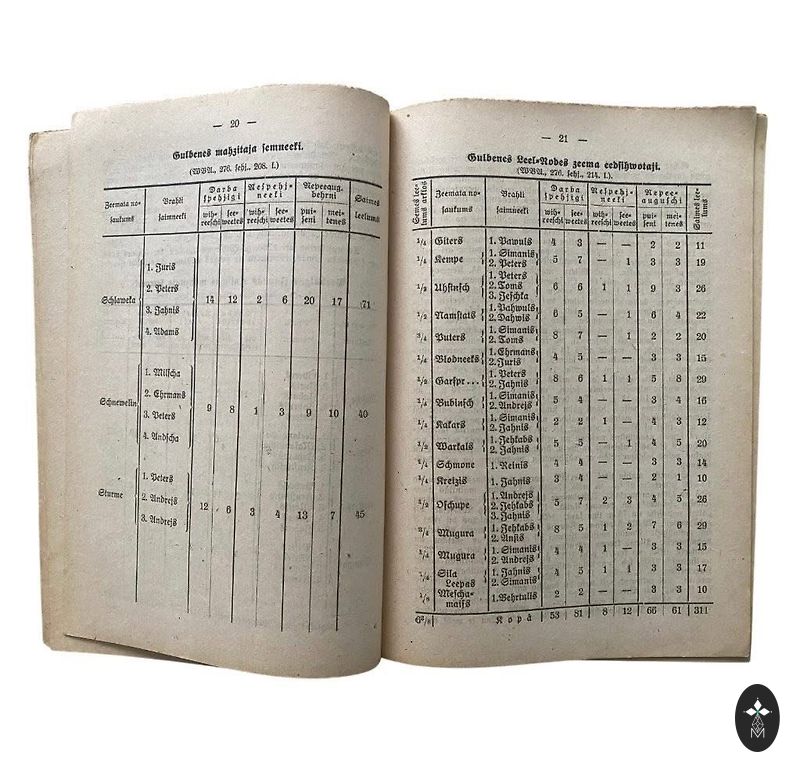 — 20 —
Gulbenes mahzitaja semneeki.
(WBA., 276. sehj., 208. l.)
Zeemata no-
saukums
Brahli
saimneeki
Darba
spehjigi
Nespehj-
neeki
Nepeeaug.
behrni
Saimes
leelums
wih-
reeschi
see-
weetes
wih-
reeschi
see-
weetes
pui-
seni
mei-
tenes
1. Juris
2. Peters
Schlaweka 14 12 2 6 20 17 71
3. Jahnis
4. Adams
1. Mischa
2. Ehrmans
Schnewelin 9 8 1 3 9 10 40
3. Peters
4. Andscha
1. Peters
Sturme 2. Andrejs 12 6 3 4 13 7 45
3. Andrejs
— 21 —
Gulbenes Leel-Rodes zeema eedsihwotaji.
(WBA., 276. sehj., 214. l.)
Semes lee-
lums arklos
Zeemata no-
saukums
Brahli
saimneeki
Darba
spehjigi
Nespehj-
neeki
Nepee-
auguschi
Saimes lee-
lums
wih-
reeschi
see-
weetes
wih-
reeschi
see-
weetes
pui-
seni
mei-
tenes
1/4 Giters 1. Pawuls 4 3 — — 2 2 11
1/4 Kempe 1. Simanis 5 7 — 1 3 3 19
2. Peters
1. Peters
1/2 Uhsinsch 2. Toms 6 6 1 1 9 3 26
3. Jeschka
1/2 Namstais 1. Pahwuls 6 5 — 1 6 4 22
2. Dahwis
3/4 Puters 1. Simanis 8 7 — 1 2 2 20
2. Toms
1/4 Blodneeks 1. Ehrmans 4 5 — — 3 3 15
2. Juris
1/2 Garspr... 1. Peters 8 6 1 1 5 8 29
2. Jahnis
1/4 Bubinsch 1. Simanis 5 4 — — 3 4 16
2. Andrejs
1/4 Kakars 1. Simanis 2 2 — 1 4 3 12
2. Jahnis
1/2 Warkals 1. Jehkabs 5 5 — 1 4 5 20
2. Jahnis
1/4 Schmone 1. Reinis 4 4 — — 3 3 14
1/4 Kreizis 1. Jahnis 3 4 — — 2 1 10
1. Andrejs
1/2 Oschupe 2. Jehkabs 5 7 2 3 4 5 26
3. Jahnis
3/4 Mugura 1. Jehkabs 8 5 1 2 7 6 29
2. Ansis
1/4 Mugura 1. Simanis 4 4 1 — 3 3 15
2. Andrejs
1/4 Sila 1. Jahnis 4 5 1 1 3 3 17
Leepas 2. Simanis
1/8 Mescha- 1. Behrtulis 2 2 — — 3 3 10
maiss
Kopā 53 81 8 12 66 61 311